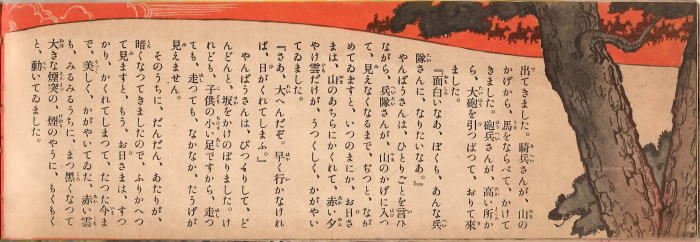 出てきました。騎兵さんが、山の
かげから、馬をならべて、かけて
きました。砲兵さんが、高い所か
ら、大砲を引つぱつて、おりて來
ました。
『面白いなあ、ぼくも、あんな兵
隊さんに、なりたいなあ。』
やんばうさんは、ひとりごとを言ひ
ながら、兵隊さんが、山のかげに入つ
て、見えなくなるまで、ぢつと、なが
めてゐますと、いつのまにか、お日さ
まは、山のあちらにかくれて、赤い夕
やけ雲だけが、うつくしく、かがやい
てゐました。
『さあ、大へんだぞ。早く行かなけれ
ば、日がくれてしまふ。』
やんばうさんは、びつくりして、ど
んどんと、坂をかけのぼりました。け
れども、子供の小い足ですから、走つ
ても、走つても、なかなか、たうげが
見えません。
そのうちに、だんだん、あたりが、
暗くなつてきましたので、ふりかへつ
て見ますと、もう、お日さまは、すつ
かり、かくれてしまつて、たつた今ま
で、美しく、かがやいてゐた、赤い雲
も、みるみるうちに、まつ黒くなつて
大きな煙突の、煙のやうに、もくもく
と、動いてゐました。